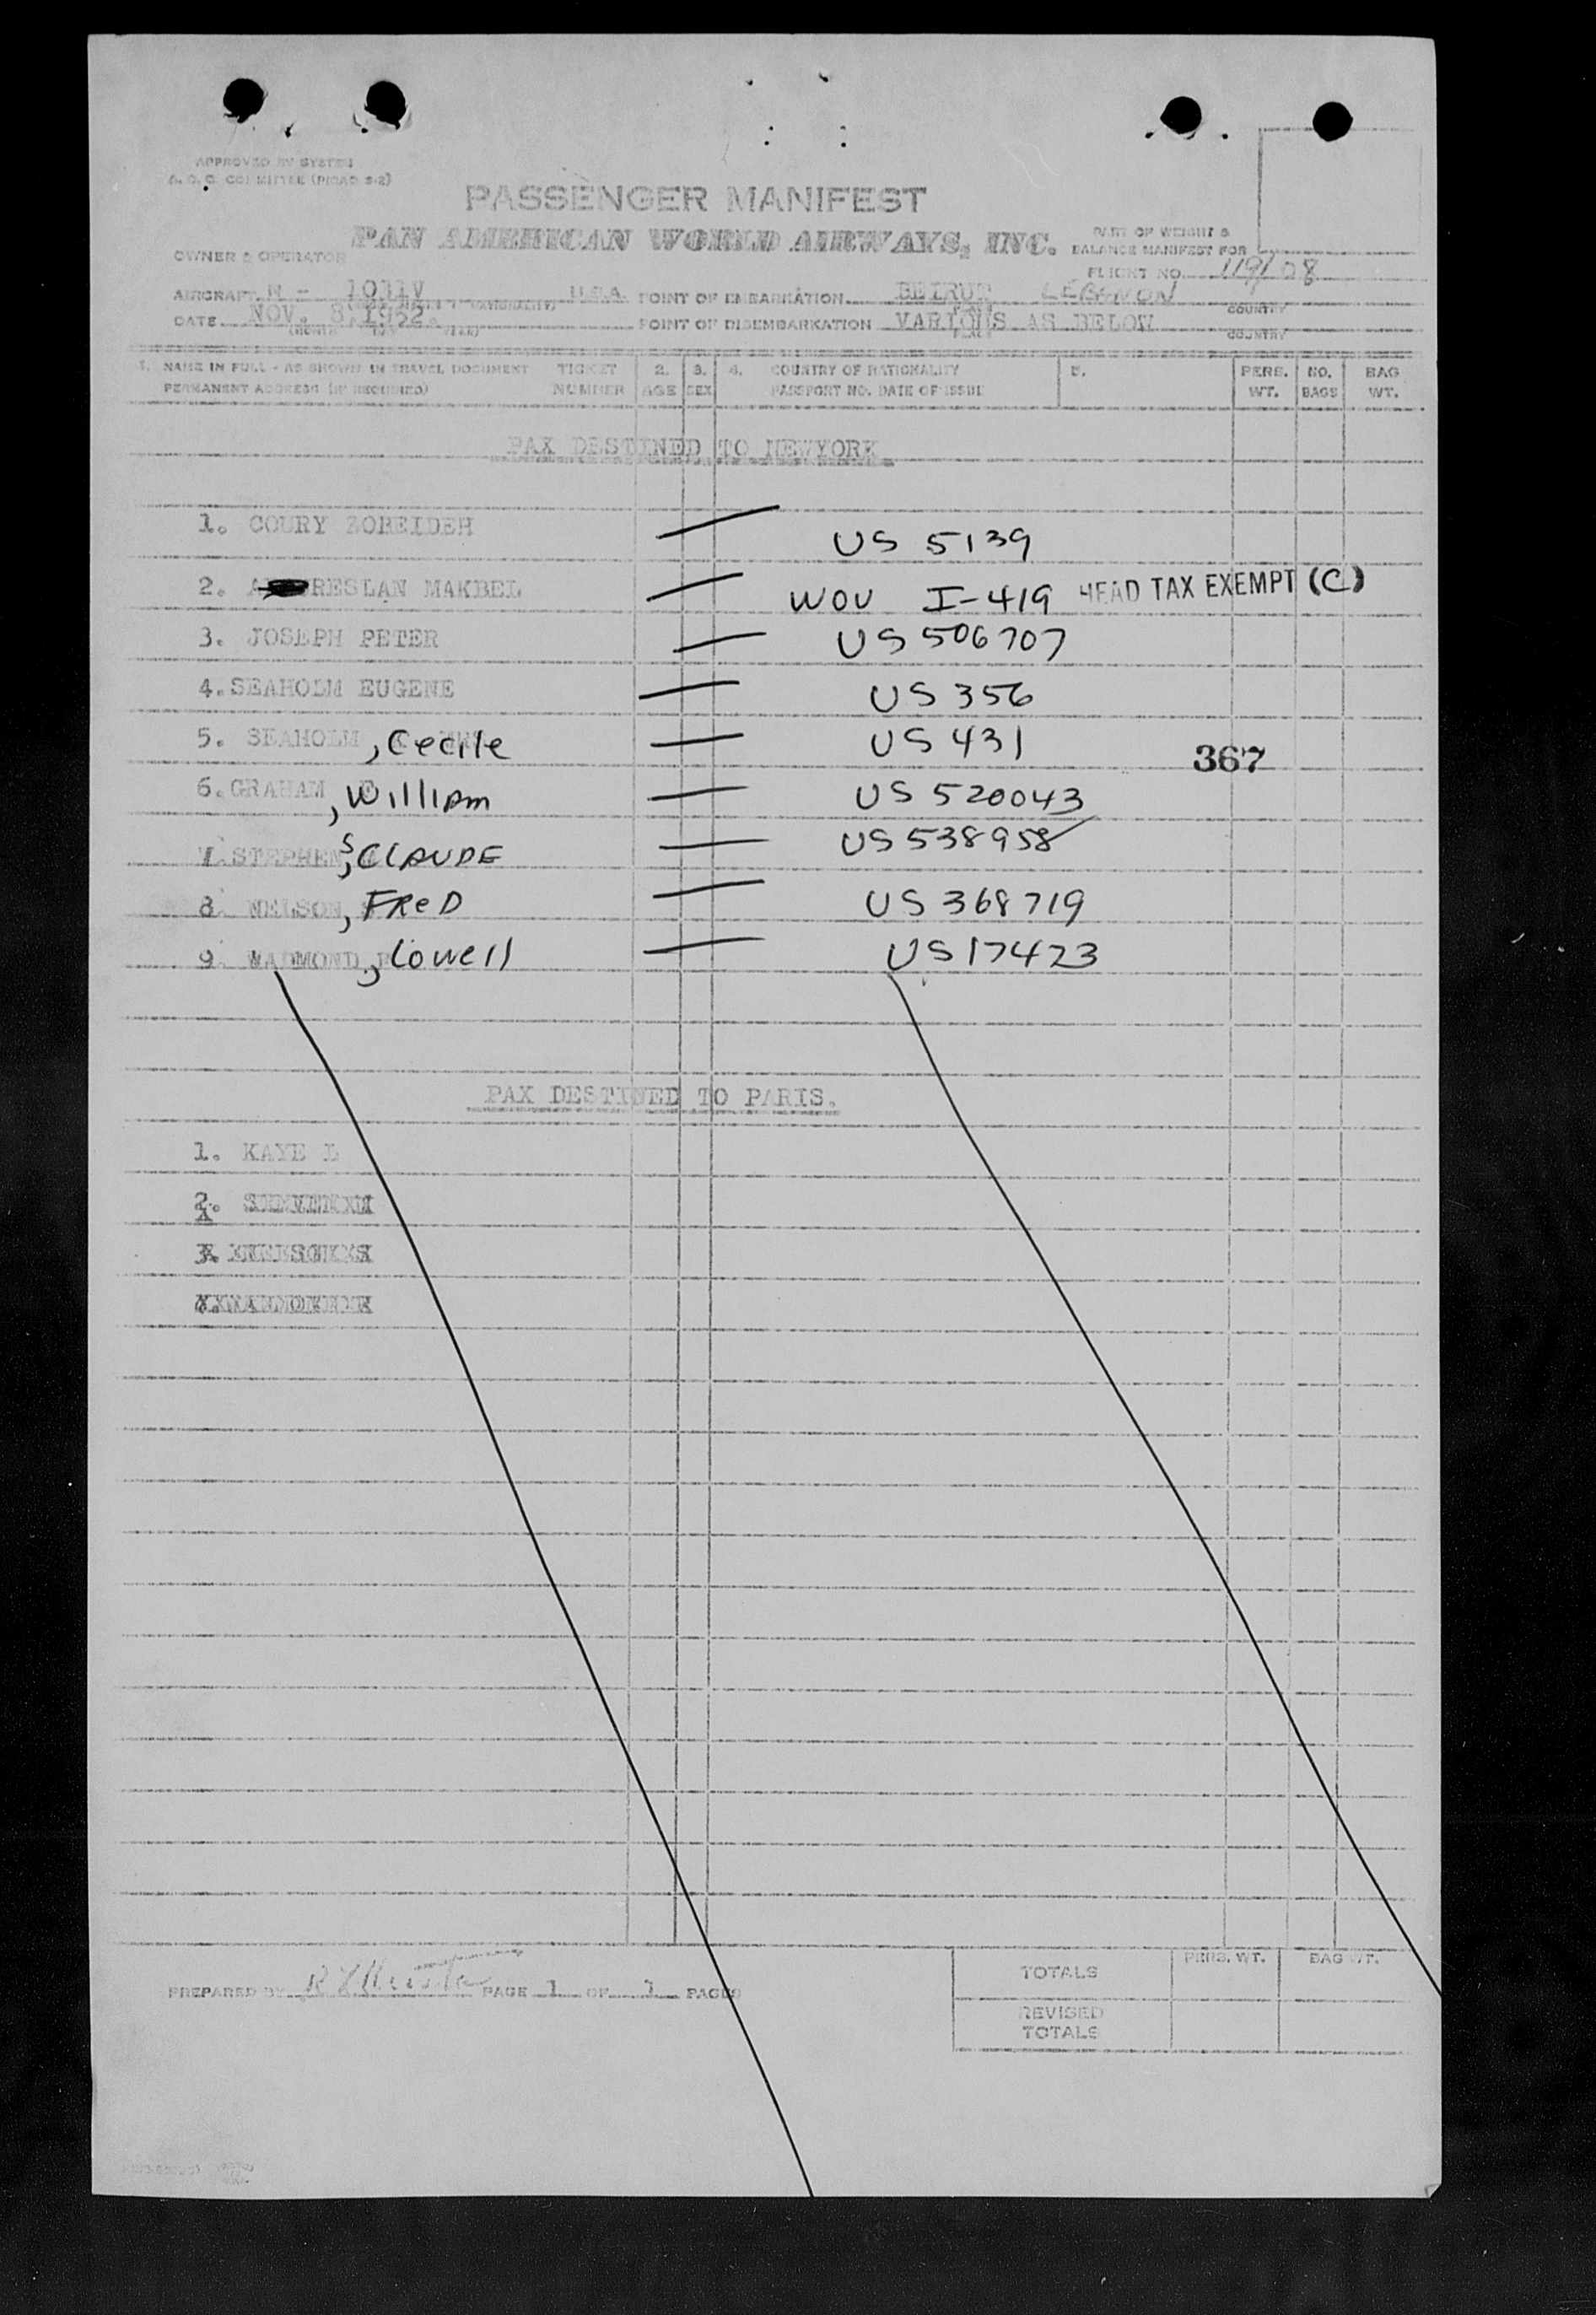 APPROVED BY SYSTEM
A.O.C. COMMITTEE (PMAD 5-2)
PASSENGER MANIFEST
PAN AMERICAN WORLD AIRWAYS, INC.
PART OF WEIGHT &
BALANCE MANIFEST FOR
OWNER & OPERATOR
FLIGHT NO. 119/08
AIRCRAFT N - 1031V U.S.A. POINT OF EMBARKATION BEIRUT LEBANON
COUNTRY
DATE NOV. 8, 1952. POINT OF DISEMBARKATION VARIOUS AS BELOW
(MONTH DAY YEAR) PLACE COUNTRY
1. NAME IN FULL - AS SHOWN IN TRAVEL DOCUMENT TICKET 2. 3. 4. COUNTRY OF NATIONALITY 5. PERS. NO. BAG
PERMANENT ADDRESS (IF REQUIRED) NUMBER AGE SEX PASSPORT NO. DATE OF ISSUE WT. BAGS WT.
PAX DESTINED TO NEWYORK
1. COURY ZOREIDEH — US 5139
2. RESLAN MAKBEL — WOV I-419 HEAD TAX EXEMPT (C)
3. JOSEPH PETER — US 506707
4. SEAHOLM EUGENE — US 356
5. SEAHOLM, Cecile — US 431
367
6. GRAHAM, William — US 520043
7. STEPHENS, CLAUDE — US 538958
8. NELSON, FReD — US 368719
9. WADMOND, Lowell — US 17423
PAX DESTINED TO PARIS.
1. KAYE L
2.
3.
PREPARED BY PAGE 1 OF 1 PAGES
TOTALS PERS. WT. BAG WT.
REVISED
TOTALS